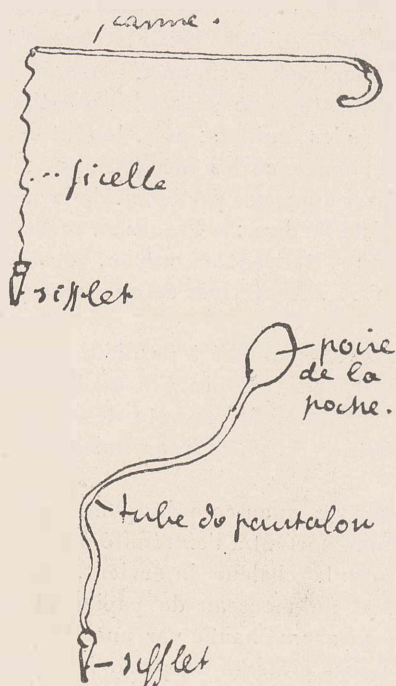 canne.
... ficelle
sifflet
poire
de la
poche.
tube do pantalon
sifflet